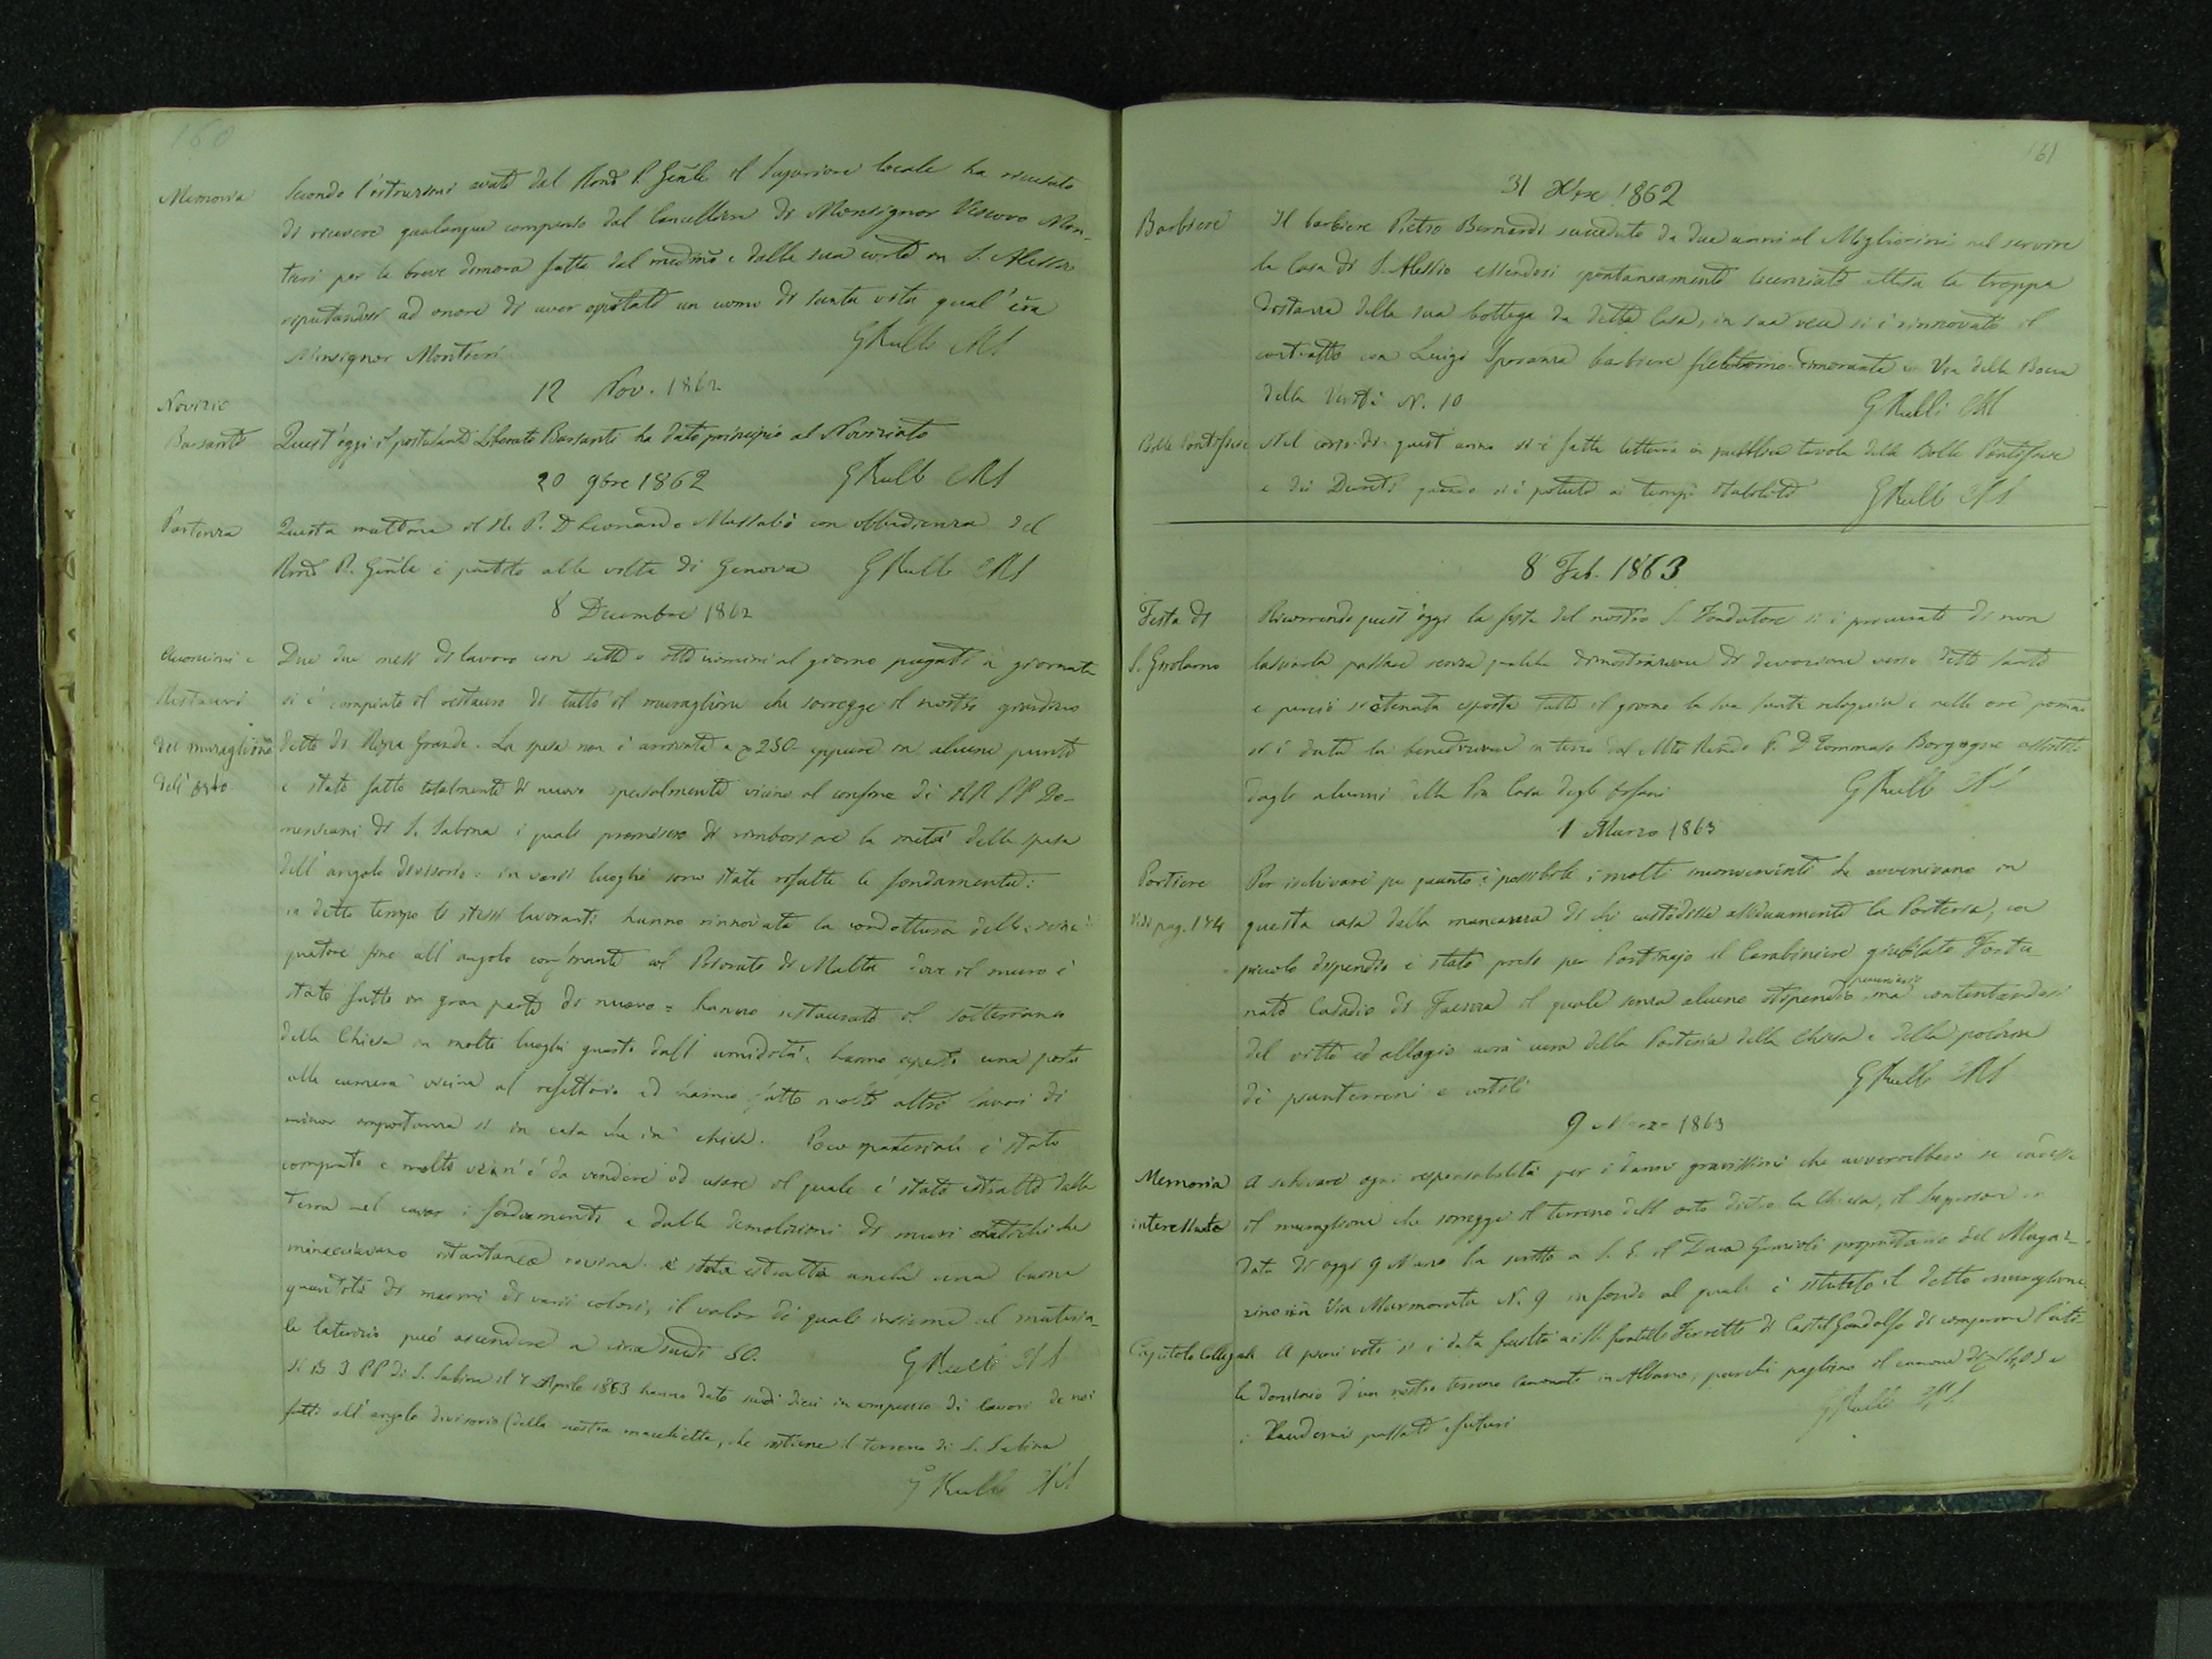 160
Memoria Secondo l'istruzioni avute dal Rmo P. Gñle il Superiore locale ha ricusato
di ricevere qualunque compenso dal Cancelliere di Monsignor Vescovo Mon-
tieri per la breve dimora fatta dal medmo e dalla sua corte in S. Alessio
reputandosi ad onore di aver ospitato un uomo di santa vita qual'era
Monsignor Montieri GRulli CRS
12 Nov. 1862
Novizio
Bassanti Quest'oggi il postulante Liberato Bassanti ha dato principio al Noviziato
20 9bre 1862 GRulli CRS
Partenza Questa mattina il M. P. D Leonardo Massabò con obbedienza del
Rmo P. Gñle è partito alla volta di Genova GRulli CRS
8 Decembre 1862
Acconcimi e Dei due mesi di lavoro con sette o otto uomini al giorno pagati a giornata
Restauri si è compiuto il restauro di tutto il muraglione che sorregge il nostro giardino
del muraglione detto di Ripa Grande. La spesa non è arrivata a 250 eppure in alcuni punti
dell'orto è stato fatto totalmente di nuovo specialmente vicino al confine di RR PP Do-
menicani di S. Sabina i quali promisero di rimborsare la metà della spesa
dell'angolo divisorio: in varii luoghi sono state rifatte le fondamenta:
in detto tempo li stessi lavoranti hanno rinnovata la conduttura delle
fino all'angolo confinante col Priorato di Malta dove il muro è
stato fatto in gran parte di nuovo = hanno restaurato il sotterraneo
della Chiesa in molti luoghi guasto dall'umidità: hanno aperta una porta
alla camera vicina al refettorio ed hanno fatto molti altri lavori di
minor importanza sì in casa che in chiesa. Poco materiale è stato
comprato e molto ve n'è da vendere od usare il quale è stato estratto dalla
terra nel cavar i fondamenti e dalle demolizioni di muri antichi che
minacciavano istantanea rovina. è stata estratta anche una buona
quantità di marmi di varii colori, il valor di quali insieme al materia-
le laterizio può ascendere a circa scudi 50. GRulli CRS
PP di S. Sabina il 4 Aprile 1863 hanno dato scudi dieci in compenso di lavori da noi
fatti all'angolo divisorio (della nostra macchietta, che sostiene il terreno di S. Sabina
GRulli CRS
161
31 Xbre 1862
Barbiere Il barbiere Pietro Bernardi succeduto da due anni al Migliorini nel servire
la Casa di S. Alessio essendosi spontaneamente licenziato attesa la troppa
distanza della sua bottega da detta Casa, in sua vece si è rinnovato il
contratto con Luigi Speranza barbiere flebotomo dimorante in Via della Bocca
della Verità N. 10 GRulli CRS
Bolle Pontificie Nel corso di quest'anno si è fatta lettura in pubblica tavola delle Bolle Pontificie
e dei Decreti quando si è potuto ai tempi stabiliti GRulli CRS
8 Feb. 1863
Festa di Ricorrendo quest'oggi la festa del nostro S. Fondatore si è procurato di non
S. Girolamo lasciarla passare senza qualche dimostrazione di devozione verso detto Santo
e perciò si è tenuta esposta tutto il giorno la sua santa reliquia e nelle ore pomne
si è data la benedizione in terzo dal Mto Rndo P. D Tommaso Borgogne assistito
dagli alunni della Pia Casa degli Orfani GRulli CRS
1 Marzo 1863
Portiere Per ischivare per quanto è possibile i molti inconvenienti che avvenivano in
Vedi pag. 144 questa casa dalla mancanza di chi custodisse assiduamente la Porteria, con
piccolo dispendio è stato preso per Portinajo il Carabiniere giubilato Fortu-
nato Casadio di Faenza il quale senza alcuno stipendio pecuniario ma contentandosi
del vitto ed alloggio avrà cura della Porteria della Chiesa e della pulizia
di pianterreni e cortili GRulli CRS
9 Marzo 1863
Memoria A schivare ogni responsabilità per i danni gravissimi che avverrebbero se cadesse
interessante il muraglione che sorregge il terreno dell'orto dietro la Chiesa, il Superiore in
data di oggi 9 Marzo ha scritto a S. E. il Duca Grazioli proprietario del Magaz-
zino in Via Marmorata N. 9 in fondo al quale è situato il detto muraglione
Capitolo Collegiale A pieni voti si è data facoltà ai fratelli Ferretti di Castel Gandolfo di comperare l'uti-
le dominio d'un nostro terreno canonato in Albano, purchè paghino il canone e
i laudemi passati e futuri GRulli CRS